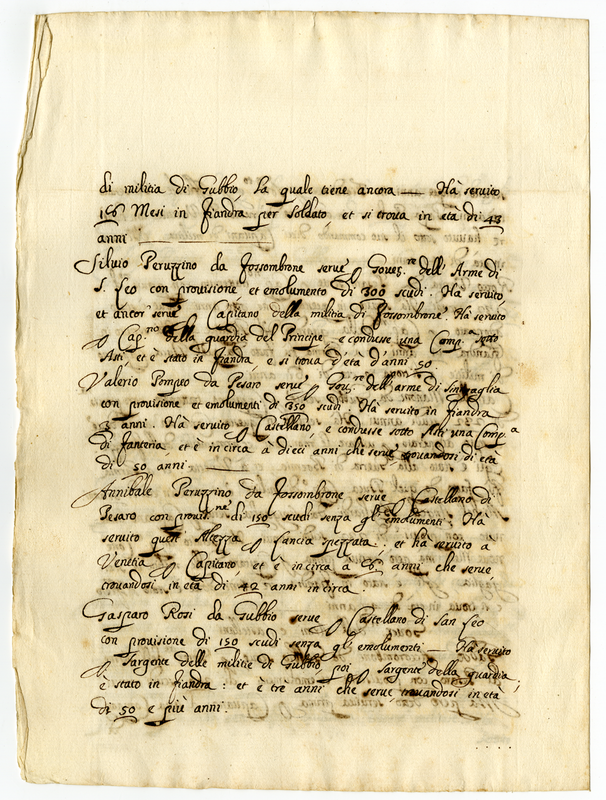 di militia di Gubbio La quale tiene ancora — Hà servito
16 Mesi in fiandra per soldato, et si trova in età di 43
anni
Silvio Peruzzino da fossombrone serve Gover.re dell' Arme di
S. Leo con provisione et emolumento di 300 scudi. Hà servito,
et ancor serve Capitano della militia di fossombrone. Hà servito
Cap.no della guardia del Principe, e condusse una Comp.a sotto
Asti, et è stato in fiandra, e si trova d'età d'anni 50
Valerio Pompeo da Pesaro serve Gov.re dell' arme di Sinigaglia
con provisione et emolumenti di 350 scudi. Hà servito in fiandra
3 anni. Hà servito Castellano, e condusse sotto Asti una Comp.a
di fanteria et è in circa à dieci anni che serve trovandosi di età
di 50 anni.
Annibale Peruzzino da fossombrone serve Castellano di
Pesaro con provis.ne di 150 scudi senza gl' emolumenti. Hà
servito quest' Altezza lancia spezzata; et hà servito à
Venetia Capitano et è in circa à 6 anni che serve,
trovandosi in età di 42 anni in circa.
Gasparo Rosi da Gubbio serve Castellano di San Leo
con provisione di 150 scudi senza gl' emolumenti. — Hà servito
Sargente delle militie di Gubbio poi Sargente della guardia;
è stato in fiandra: et è tre anni che serve trovandosi in età
di 50 e più anni.